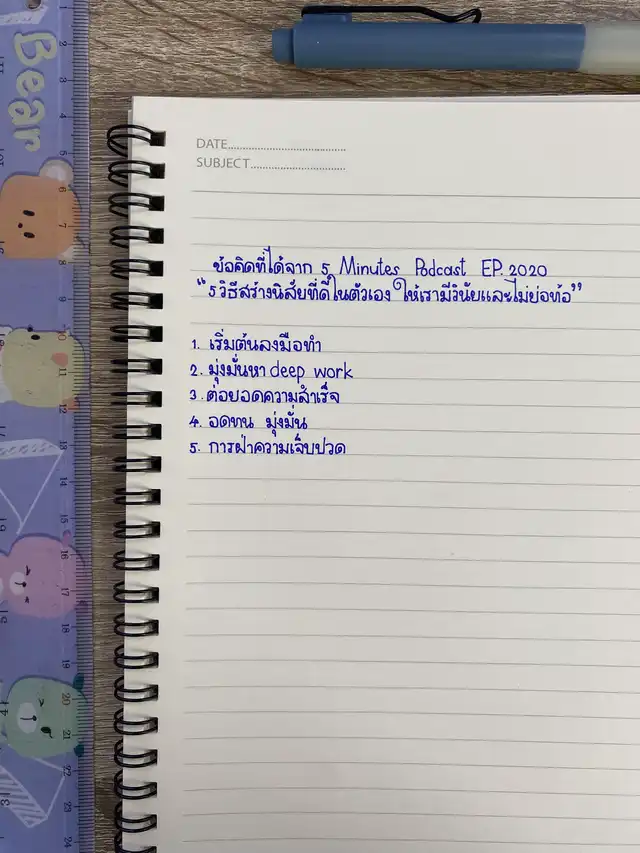 Bear
DATE
SUBJECT
ข้อคิดที่ได้จาก 5 Minutes Podcast EP. 2020
“5 วิธีสร้างนิสัยที่ดีในตัวเอง ให้เรามีวินัยและไม่ย่อท้อ”
1. เริ่มต้นลงมือทำ
2. มุ่งมั่นหา deep work
3. ต่อยอดความสำเร็จ
4. อดทน มุ่งมั่น
5. การฝ่าความเจ็บปวด